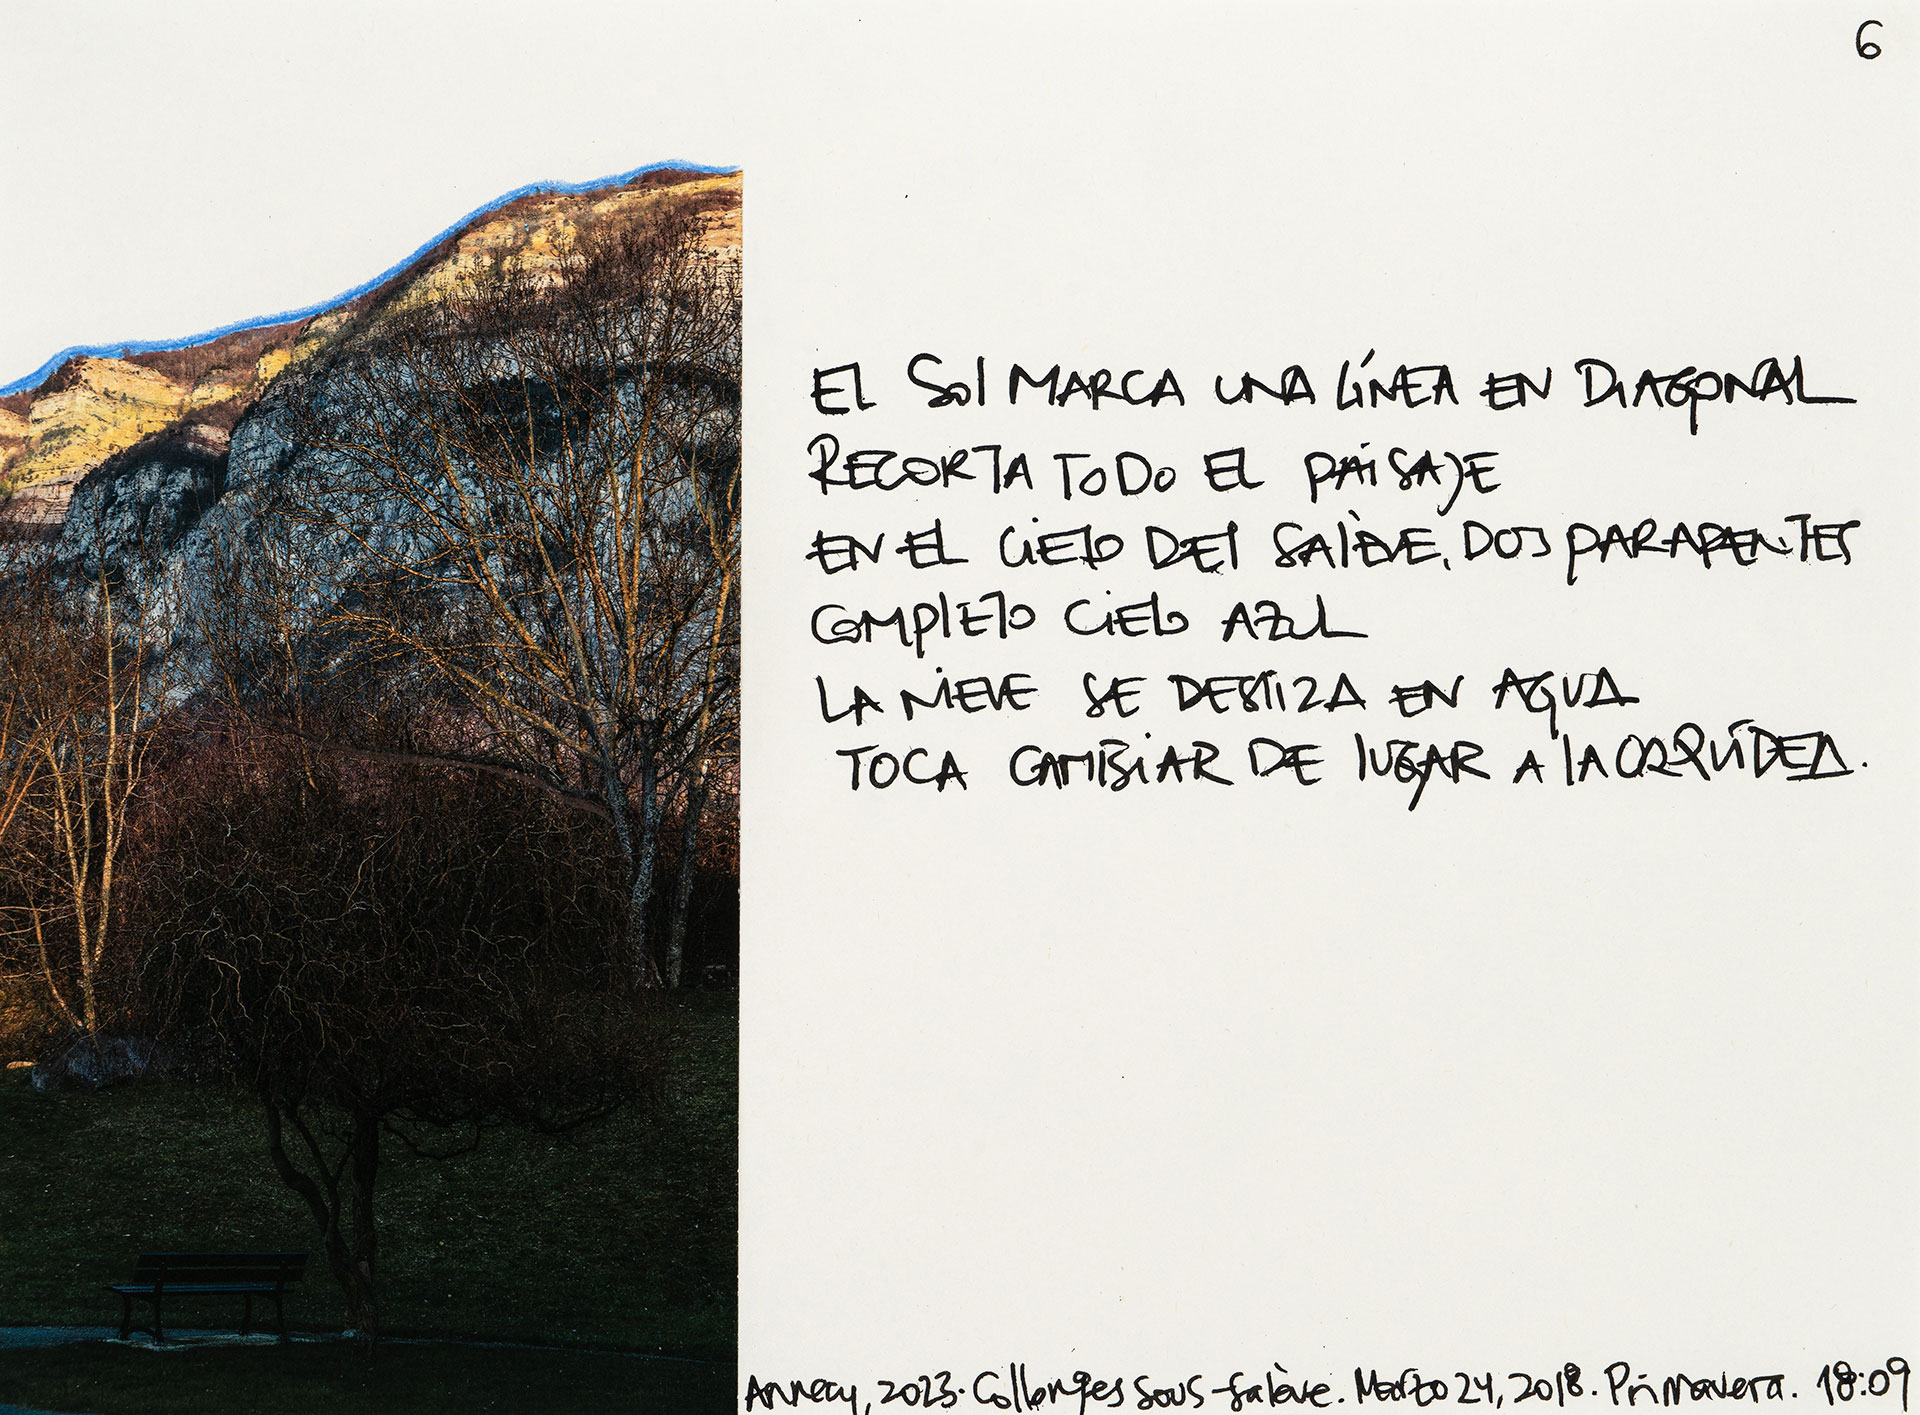 6
EL Sol MARCA UNA LÍNEA EN DIAGONAL
RECORTA TODO EL PAISAJE
EN EL CIELO DEL SALÈVE, DOS PARAPENTES
COMPLETO CIELO AZUL
LA NIEVE SE DESLIZA EN AGUA
TOCA CAMBIAR DE LUGAR A LA ORQUÍDEA.
Annecy, 2023. Collonges sous-Salève. Marzo 24, 2018. Primavera. 18:09